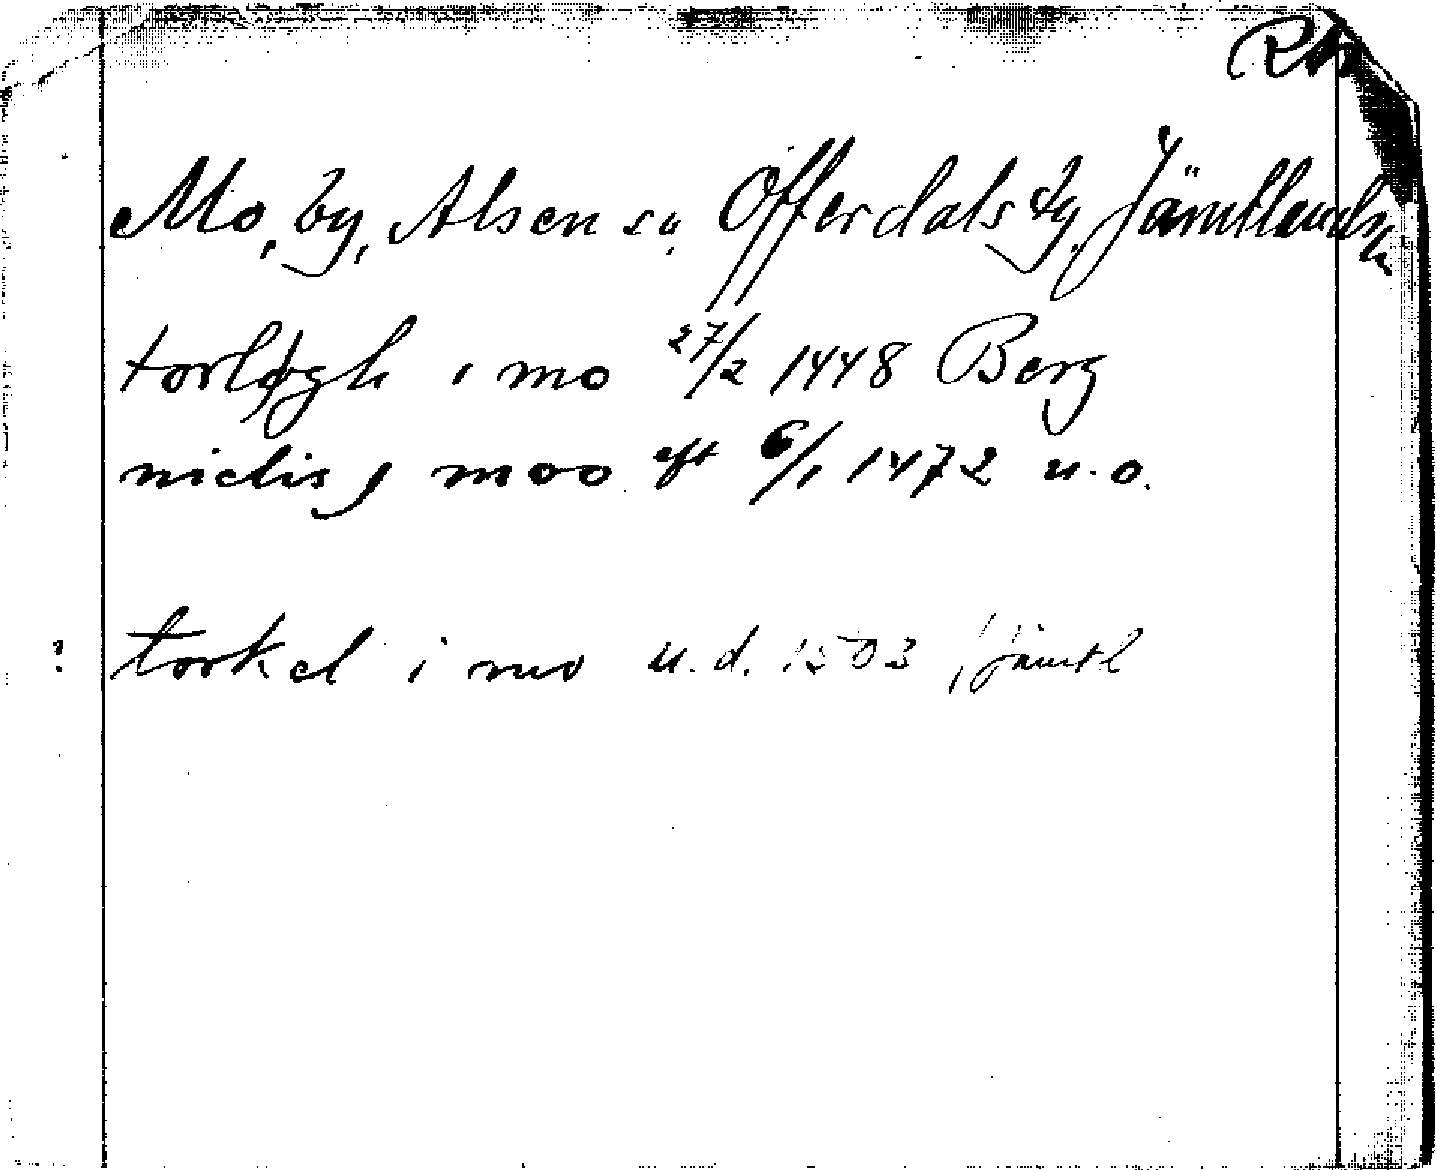 Mo, by, Alsen sn, Offerdals tg, Jämtlands l.
torløgh i mo 27/2 1448 Berg
niclis j moo eft 6/1 1472 u. o.
? torkel i mo u. d. 1503, Jämtl